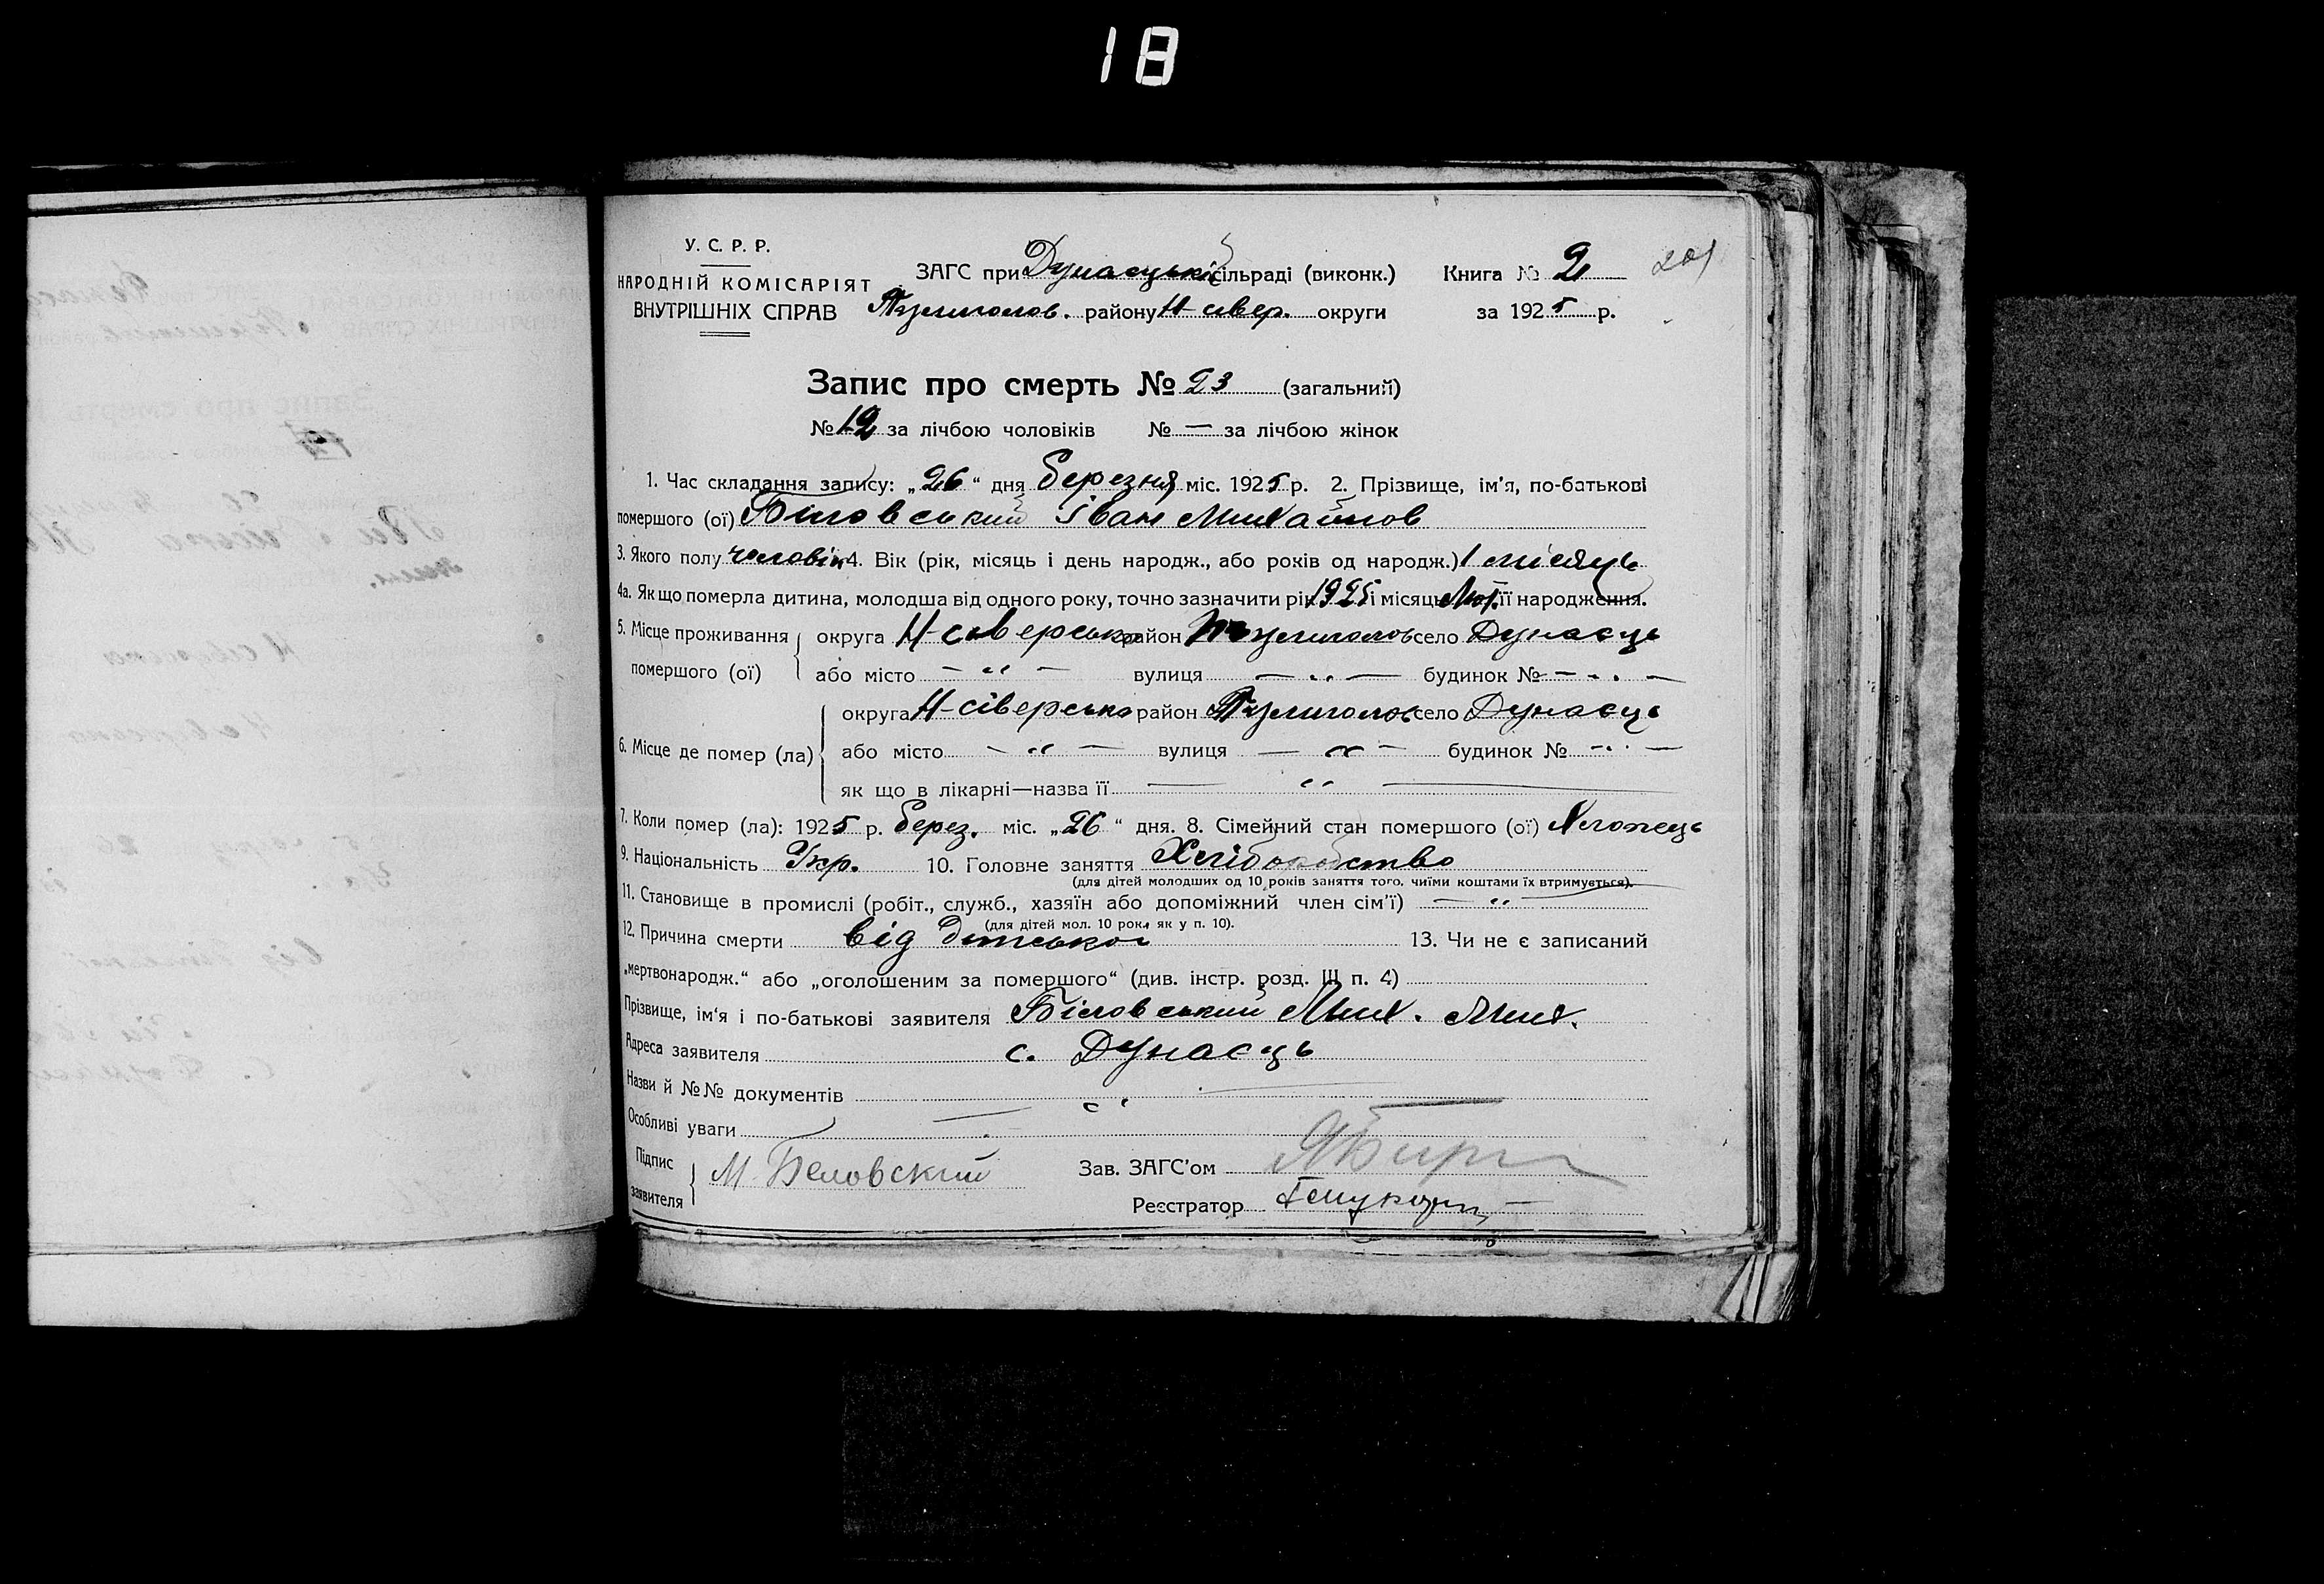 18
У. С. Р. Р.
НАРОДНІЙ КОМІСАРІЯТ
ВНУТРІШНІХ СПРАВ
ЗАГС при Дунаєцькій сільраді (виконк.)
Книга № 2
201
районуН-сівер. округи
за 1925 р.
Запис про смерть № 23 (загальний)
№ 12 за лічбою чоловіків № — за лічбою жінок
1. Час складання запису: „26“ дня березня міс. 1925 р. 2. Прізвище, ім'я, по-батькові
помершого (ої) Біловський Іван Михайлов
3. Якого полу чоловік 4. Вік (рік, місяць і день народж., або років од народж.) 1 місяць
4а. Як що померла дитина, молодша від одного року, точно зазначити рік 1925 і місяць Лют. її народження.
5. Місце проживання помершого (ої) округа Н-сіверська район село Дунаєць
або місто — „ — вулиця — „ — будинок № — „ —
6. Місце де помер (ла) округа Н-сіверська район село Дунаєць
або місто — „ — вулиця — „ — будинок № — „ —
як що в лікарні—назва її — „ —
7. Коли помер (ла): 1925 р. берез. міс. „26“ дня. 8. Сімейний стан помершого (ої) Хлопець
9. Національність Укр. 10. Головне заняття Хліборобство
(для дітей молодших од 10 років заняття того, чиїми коштами їх втримується).
11. Становище в промислі (робіт., служб., хазяїн або допоміжний член сім'ї) — „ —
(для дітей мол. 10 рок. як у п. 10).
12. Причина смерти від дитської 13. Чи не є записаний
„мертвонародж.“ або „оголошеним за помершого“ (див. інстр. розд. III п. 4)
Прізвище, ім'я і по-батькові заявителя Біловський Мих. Мих.
Адреса заявителя с. Дунаєць
Назви й №№ документів
Особливі уваги
Підпис заявителя М. Беловский
Зав. ЗАГС'ом
Реєстратор